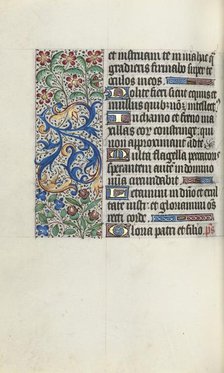 et instruam te in via hac qua
gradieris firmabo super te
oculos meos.
Nolite fieri sicut equus et
mulus quibus non est intellectus
In chamo et freno ma
xillas eorum constringe qui
non approximant ad te
Multa flagella peccatoris
sperantem autem in domino
misericordia circumdabit
Letamini in domino et exul
tate iusti et gloriamini om̃s
recti corde.
Gloria patri et filio. ps